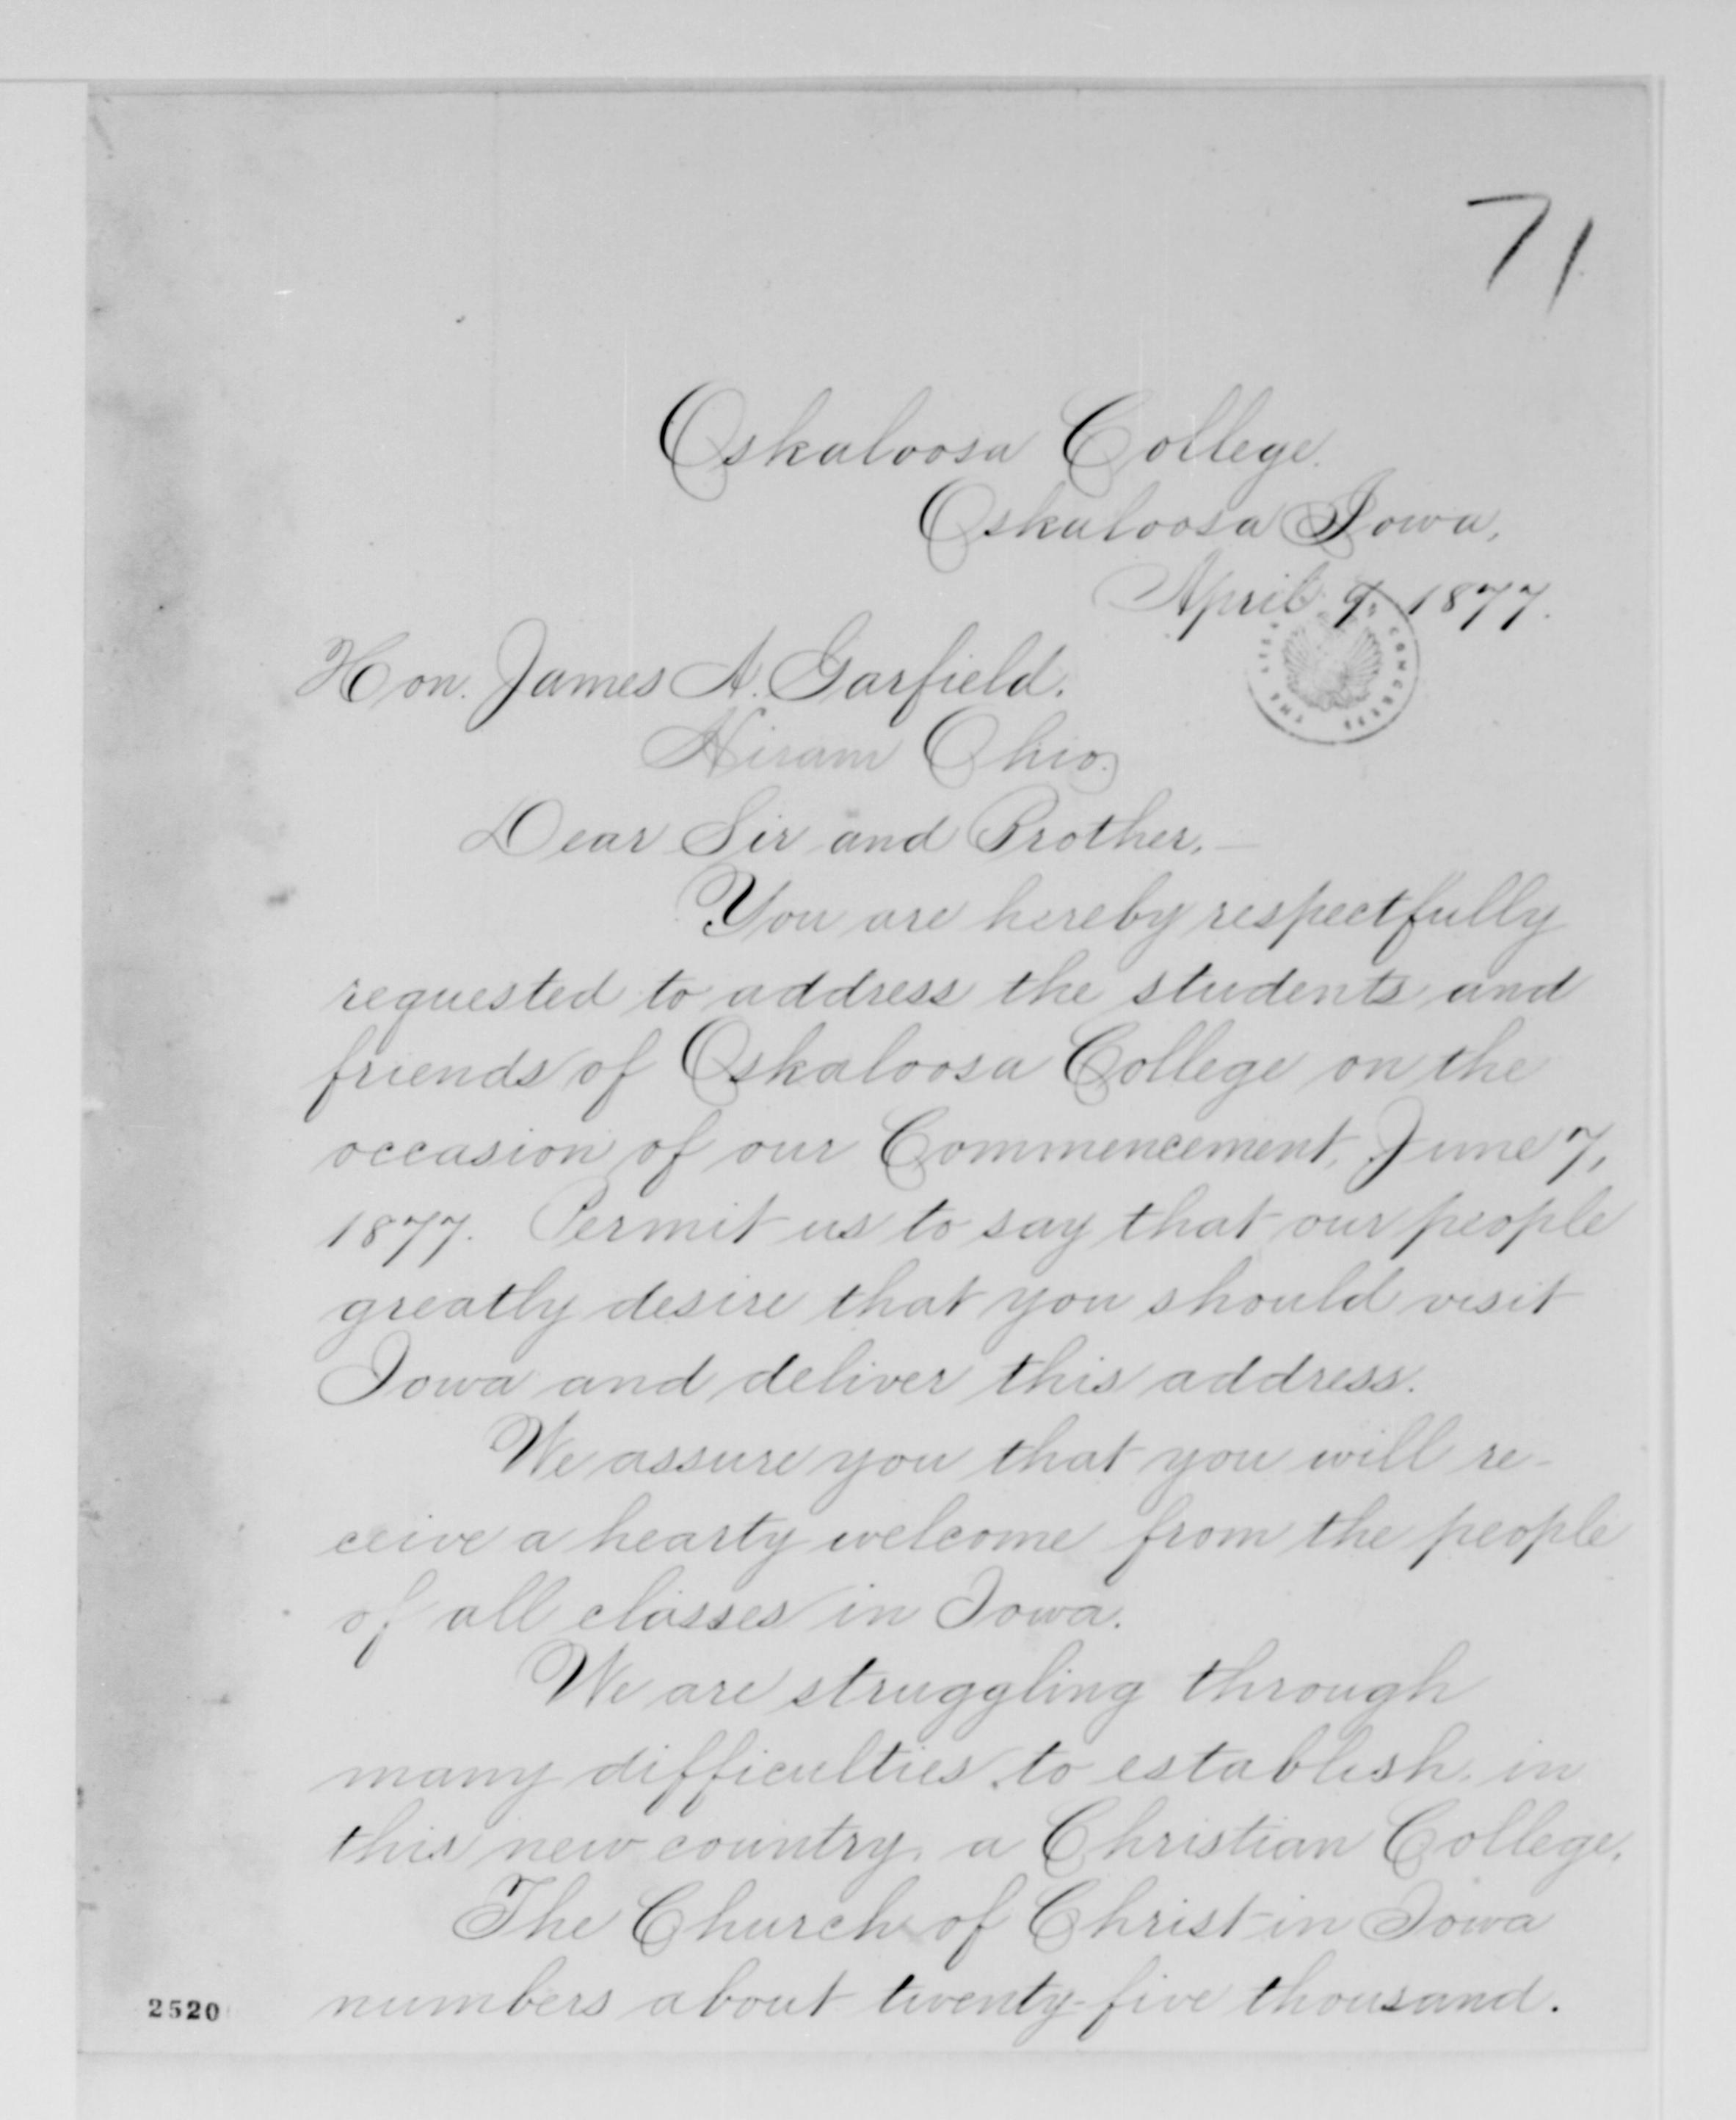 71
Oskaloosa College.
Oskaloosa Iowa,
April 9, 1877.
Hon. James A. Garfield.
Hiram Ohio.
Dear Sir and Brother,—
You are hereby respectfully
requested to address the students and
friends of Oskaloosa College on the
occasion of our Commencement, June 7,
1877. Permit us to say that our people
greatly desire that you should visit
Iowa and deliver this address.
We assure you that you will re-
ceive a hearty welcome from the people
of all classes in Iowa.
We are struggling through
many difficulties, to establish, in
this new country, a Christian College.
The Church of Christ in Iowa
numbers about twenty-five thousand.
2520